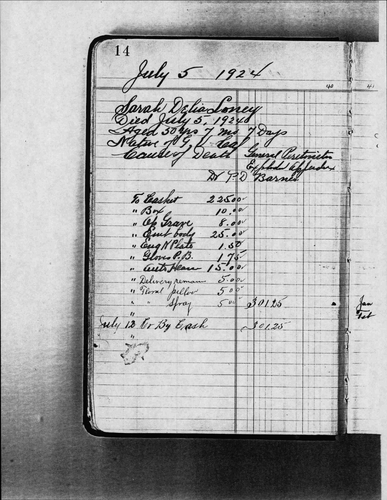 14
July 5 1924
Sarah Delia Loney
Died July 5, 1924
Aged 30 yrs 7 mo 7 Days
Native of
Cause of Death General Peritonitis
Dr P. D. Barnes
To Casket 225.00
" Box 10.00
" Op Grave 8.00
" Emb body 25.00
" Eng N Plate 1.50
" Gloves P. B. 1 75
" Auto Hearse 15.00
" Delivery remains 5.00
" Floral pillow 5.00
" " Spray 5 00 301.25
July 12 Cr By Cash 301.25
"
Jan
Feb